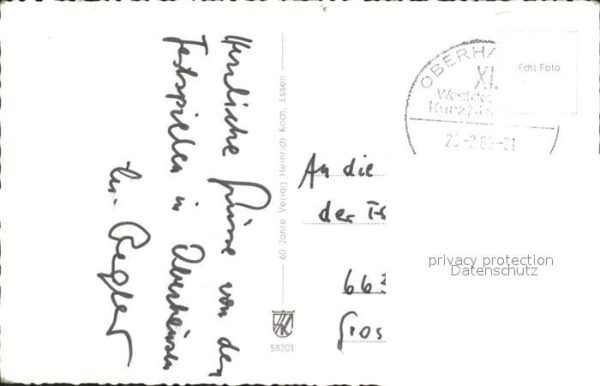 Herzliche Grüsse von den
Festspielen in Oberhausen
60 Jahre Verlag Heinrich Koch, Essen
58201
OBERHA
XI.
Westde
Kurzfil
Echt Foto
An die
der
663
Gros
privacy protection
Datenschutz